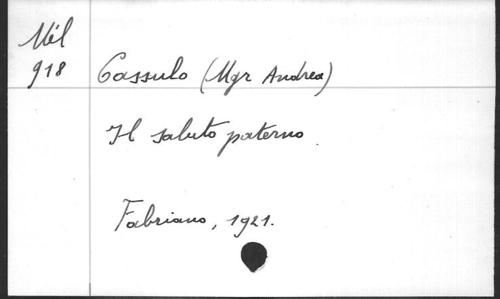 Mél
918
Cassulo (Mgr Andrea)
Il saluto paterno.
Fabriano, 1921.